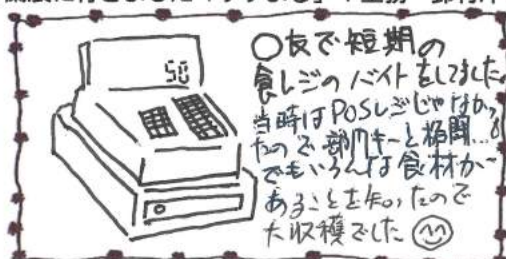 50
〇友で短期の
食レジのバイトをしてました。
当時はPOSレジじゃなかっ
たので部門キーと格闘…。
でもいろんな食材が
あることを知ったので
大収穫でした